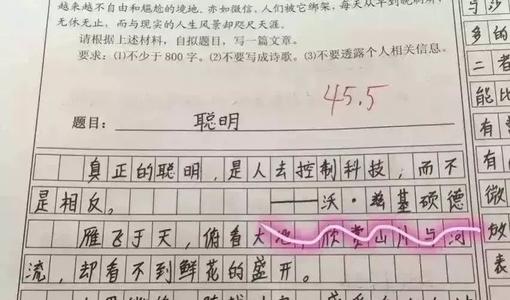 越来越不自由和尴尬的境地。亦如微信，人们被它绑架，每天从早到晚刷屏，
无休无止，而与现实的人生风景却咫尺天涯。
请根据上述材料，自拟题目，写一篇文章。
要求：(1)不少于800字。(2)不要写成诗歌。(3)不要透露个人相关信息。
45.5
题目：聪明
真正的聪明，是人去控制科技，而不
是相反。——沃·兹基硕德
雁飞于天，俯看大地，欣赏山川与河
流，却看不到鲜花的盛开。
与沙
多的
二者
能比
有
有
微
放
表